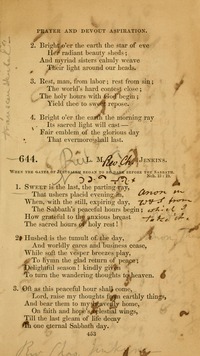 PRAYER AND DEVOUT ASPIRATION.
2. Bright o'er the earth the star of eve
Her radiant beauty sheds;
And myriad sisters calmly weave
Their light around our heads.
3. Rest, man, from labor; rest from sin;
The world's hard contest close;
The holy hours with God begin;
Yield thee to sweet repose.
4. Bright o'er the earth the morning ray
Its sacred light will cast—
Fair emblem of the glorious day
That evermore shall last.
644. L. M. Jenkins.
When the gates of Jerusalem began to be dark before the Sabbath.
1. Sweet is the last, the parting ray,
That ushers placid evening in,
When, with the still, expiring day,
The Sabbath's peaceful hours begin;
How grateful to the anxious breast
The sacred hours of holy rest!
2. Hushed is the tumult of the day,
And worldly cares and business cease,
While soft the vesper breezes play,
To hymn the glad return of peace;
Delightful season! kindly given
To turn the wandering thoughts to heaven.
3. Oft as this peaceful hour shall come,
Lord, raise my thoughts from earthly things,
And bear them to my heavenly home,
On faith and hope's celestial wings,
Till the last gleam of life decay
In one eternal Sabbath day.
453